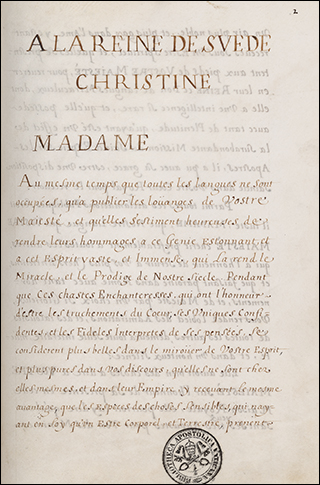 2
A LA REINE DE SVEDE
CHRISTINE
MADAME
Au mesme temps que toutes les langues ne sont
occupées, qu'a publier les loüanges de Vostre
Maiesté et qu'elles s'estiment heureuses de
rendre leurs hommages a ce Genie Estonnant et
a cet Esprit vaste, et Immense, qui La rend le
Miracle, et le Prodige de Nostre siecle. Pendant
que Ces chastes Enchanteresses, qui ont l'honneur
d'estre les truchements du Coeur, les Uniques Confi-
dentes, et les Fideles Interpretes de ses pensées, se
considerent plus belles dans le miroüer de Vostre Esprit,
et plus pures dans Vos discours, qu'elles ne sont chez
elles mesmes, et dans leur Empire, y recevant le mesme
avantage, que les especes des choses sensibles, qui nag-
ant en soy qu'un Estre Corporel et Terrestre, prennent
BIBLIOTECA APOSTOLICA VATICANA